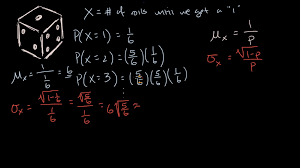 X = # of rolls until we get a "1"
P(X=1) = 1/6
P(X=2) = (5/6)(1/6)
P(X=3) = (5/6)(5/6)(1/6)
⋮
μx = 1/p
σx = √(1-p)/p
μx = 1/(1/6) = 6
σx = √(1-1/6)/(1/6) = √(5/6)/(1/6) = 6√(5/6) =